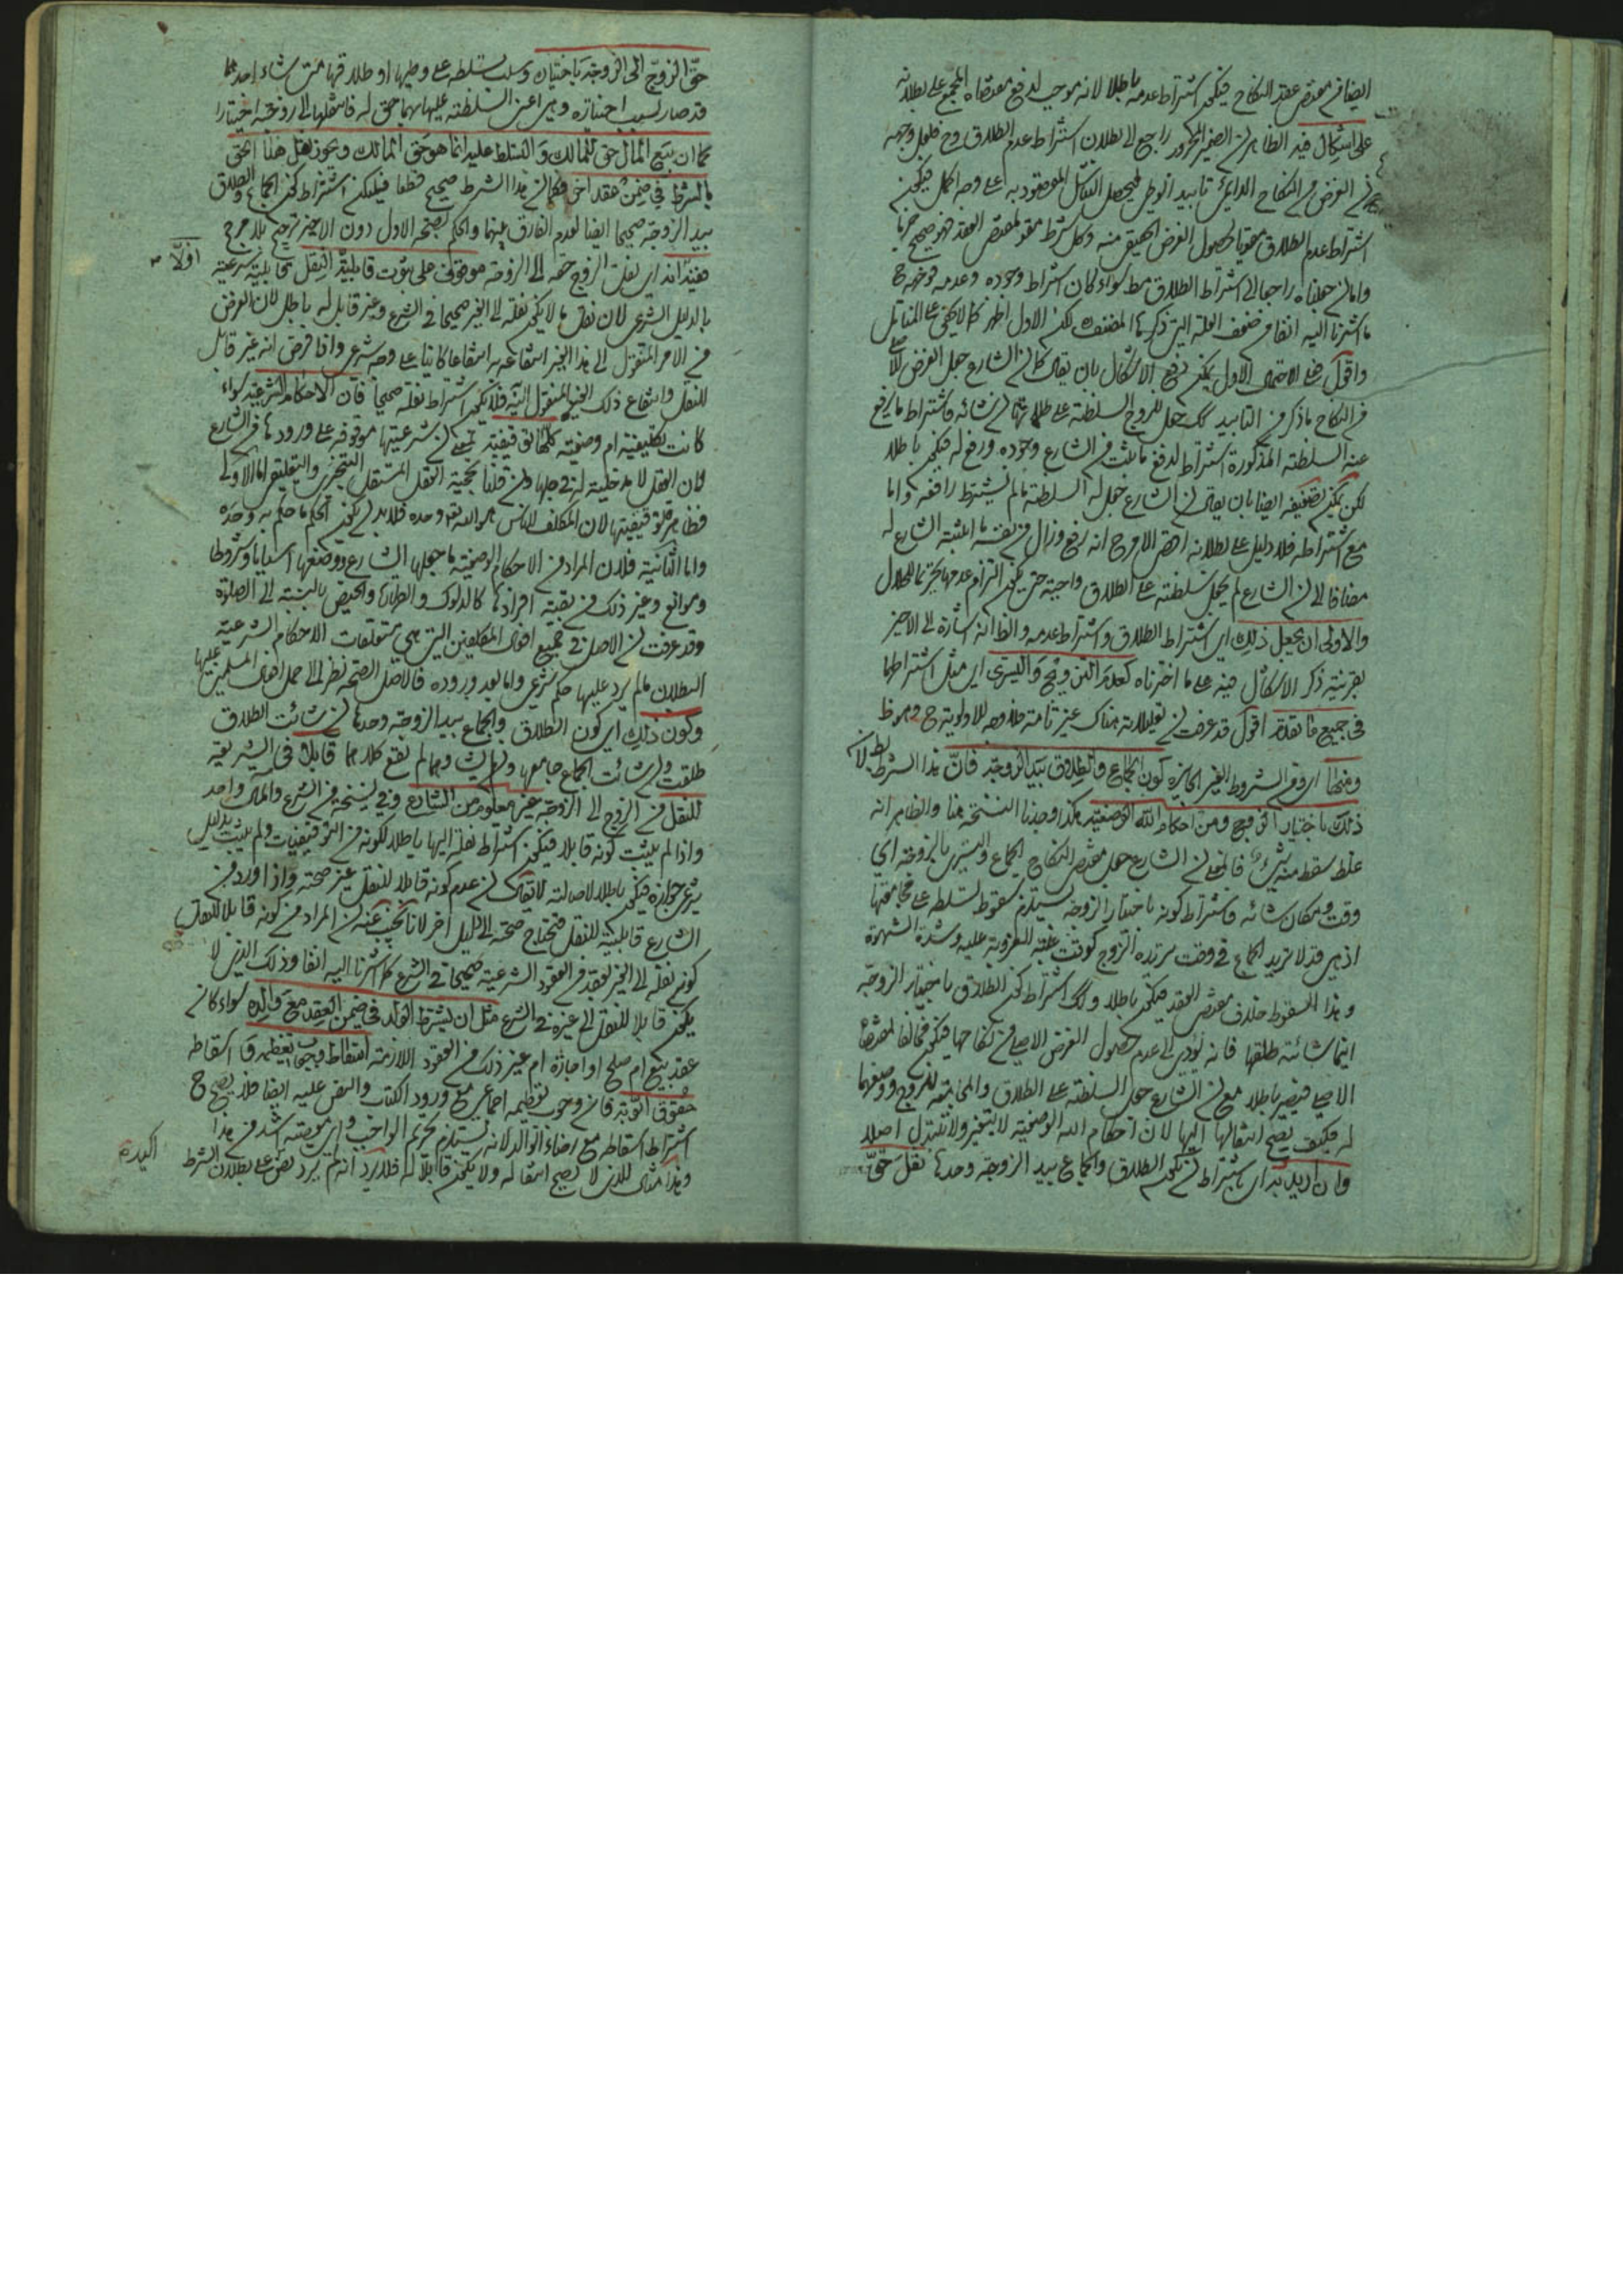 ايضا في مقتضى عقد النكاح فيكون اشتراط عدمه باطلا لانه موجب لدفع مقتضاه المجمع على بطلانه
على اشكال فيه الظاهر ان الضمير المجرور راجع الى بطلان اشتراط عدم الطلاق وح فلعل وجهه
ان الغرض في النكاح الدائمي تأبيد الوطي ليحصل التناسل المقصود به على وجه اكمل فيكون
اشتراط عدم الطلاق مقويا لحصول الغرض الحقيقي منه وكل شرط مقو لمقتضى العقد فهو صحيح جزما
واما ان جعلناه راجعا الى اشتراط الطلاق مط سواء كان اشتراط وجوده وعدمه فوجهه ح
ما اشرنا اليه انفا من ضعف العلة التي ذكرها المصنف لكن الاول اظهر كما لا يخفى على المتأمل
واقول على الاحتمال الاول يمكن دفع الاشكال بان يقال كما ان الشارع جعل الغرض الاصلي
في النكاح ما ذكر من التأبيد كك جعل للزوج السلطنة على طلاقها ان شاء فاشتراط ما يرفع
عنه السلطنة المذكورة اشتراط لدفع ما يثبت من الشارع وجوده ورفع له فيكون باطلا
لكن يمكن تضعيفه ايضا بان يقال ان الشارع جعل له السلطنة ما لم يشترط رافعه واما
مع اشتراطه فلا دليل على بطلانه اقصى الامر ح انه رفع وزال من نفسه ما اثبته الشارع له
مضافا الى ان الشارع لم يجعل سلطنته على الطلاق واجبة حتى يكون التزام عدمها تحريما للحلال
والاولى ان يجعل ذلك اي اشتراط الطلاق واشتراط عدمه والظ انه اشارة الى الاخير
بقرينة ذكر الاشكال فيه على ما اخترناه كعدم التزويج والتسري اي مثل اشتراطهما
في جميع ما تقدم اقول قد عرفت ان تعليلاته هناك غير تامة فلا وجه للاولوية ح وهو ظ
ومنها اي ومن الشروط الغير الجائزة كون الجماع والطلاق بيد الزوجة فان هذا الشرط بط لان
ذلك باختيار الزوج ومن احكام الله الوضعية هكذا وجدنا النسخة هنا والظاهر انه
غلط سقط منه شيء فالمعنى ان الشارع جعل مقتضى النكاح الجماع والتسري بالزوجة اي
وقت ومكان شائه فاشتراط كونه باختيار الزوجة يستلزم سقوط تسلطه على مجامعتها
اذ هي قد لا تريد الجماع في وقت يريده الزوج كوقت غلبة العزوبة عليه وشدة الشهوة
وهذا السقوط خلاف مقتضى العقد فيكون باطلا وكك اشتراط كون الطلاق باختيار الزوجة
انها شائته طلقها فانه يؤدي الى عدم حصول الغرض الاصلي من نكاحها فيكون مخالفا لمقتضاه
الاصلي فيصير باطلا مع ان الشارع جعل السلطنة على الطلاق والجامعة للزوج ووضعهما
له فكيف يصح انتقالها اليها لان احكام الله الوضعية لا يتغير ولا تتبدل اصلا
وان اريد به اي باشتراط ان يكون الطلاق والجماع بيد الزوجة وحدها نقل حق
حق الزوج الى الزوجة باختياره وسلب تسلطه على وطيها او طلاقها متى شاء احدهما
قد صار بسبب اختياره وهي اعني السلطنة عليها بهما حق له فانتقلها الى زوجته اختيارا
كما ان بيع المال حق للمالك والتسلط عليه انما هو حق المالك ويجوز نقل هذا الحق
بالشرط في ضمن عقد اخر فكما ان هذا الشرط صحيح قطعا فليكن اشتراط كون الجماع والطلاق
بيد الزوجة صحيحا ايضا لعدم الفارق بينهما والحكم بصحة الاول دون الاخير ترجيح بلا مرجح
ففيه انه اي نقل الزوج حقه الى الزوجة موقوف على ثبوت قابلية النقل قابلية شرعية
اولا
بالدليل الشرعي لان نقل ما لا يكون نقله الى الغير صحيحا في الشرع وغير قابل له باطل لان الغرض
من الامر المنقول الى هذا الغير انتفاعه به انتفاعا كائنا على وجه شرعي واذا فرض انه غير قابل
للنقل وانتفاع ذلك الغير المنقول اليه فلا يكون اشتراط نقله صحيحا فان الاحكام الشرعية سواء
كانت تكليفية ام وضعية كلها توقيفية بمعنى ان شرعيتها موقوفة على ورودها من الشارع
فان العقل لا مدخلية له في جعلها وان قلنا بحجية العقل المستقل التنجيزي والتعليقي اما الاولى
فظاهر توقيفيتها لان المكلف للناس هو الله تع وحده فلا بد ان يكون الحكم ما حكم به وحده
واما الثانية فلان المراد من الاحكام الوضعية ما جعلها الشارع ووضعها اسبابا وشروطا
وموانع وغير ذلك من بقية افرادها كالدلوك والطهارة والحيض بالنسبة الى الصلوة
وقد عرفت ان الاصل في جميع افعال المكلفين التي هي متعلقات الاحكام الشرعية
البطلان ما لم يرد عليها حكم شرعي واما بعد وروده فالاصل الصحة نظرا الى حمل افعال المسلمين عليها
وكون ذلك اي كون الطلاق والجماع بيد الزوجة وحدها ان شائت الطلاق
طلقت وان شائت الجماع جامعها وذلك وهما لم يقع كلاهما قابلا في الشريعة
للنقل من الزوج الى الزوجة غير معلوم من الشارع وفي نسخة من الشرع والمآل واحد
واذا لم يثبت كونه قابلا فيكون اشتراط نقله اليها باطلا لكونه من التوقيفيات ولم يثبت بدليل
شرعي جوازه فيكون باطلا لاصالته لا يقال ان عدم كونه قابلا للنقل غير صحته واذا ورد من
الشارع قابليته للنقل فتحتاج صحته الى دليل اخر لانا نجيب عنه ان المراد من كونه قابلا للنقل
كون نقله الى الغير بعقد من العقود الشرعية صحيحا في الشرع كما اشرنا اليه انفا وذلك الذي لا
يكون قابلا للنقل الى غيره في الشرع مثل ان يشترط الولد في ضمن العقد مع والده سواء كان
عقد بيع ام صلح او اجارة ام غير ذلك من العقود اللازمة اسقاط وجوب تعظيمه واسقاط
حقوق الابوة فان وجوب تعظيمه اجماعي مع ورود الكتاب والنص عليه ايضا فلا يصح ح
اشتراط اسقاطه مع رضاء الوالد لانه يستلزم تحريم الواجب واي معصية اشد من هذا
وهذا مثال للذي لا يصح انتقاله ولا يكون قابلا له فلا يرد انه لم يرد نص على بطلان الشرط